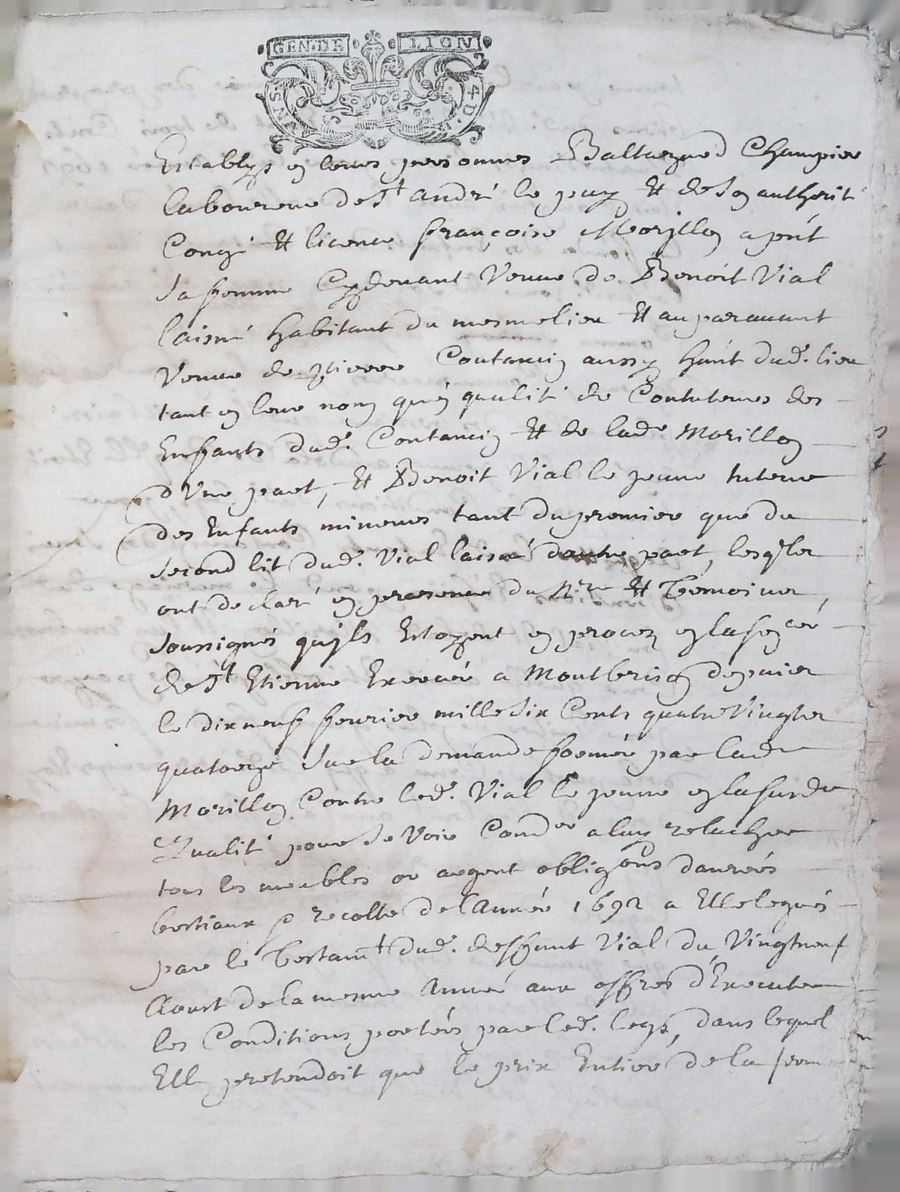 GEN·DE LION
4 D.
Establys en leurs personnes Baltazard Champier
laboureur de St André le puy et de son authorité
Congé et licence françoise Morillon a pnt
Sa femme Cydevant Veuve de Benoit Vial
laisné habitant du mesme lieu et auparavant
Veuve de pierre Coutancin aussy habnt dud. lieu
tant en leur nom qu'en qualité de Contuteurs des
Enfants dud. Coutancin et de lade Morillon
d'Une part, et Benoit Vial le jeune tuteur
des Enfants mineurs tant du premier que du
Second lit dud. Vial laisné dautre part, lesqles
ont declaré en presence du Nre et temoins
Soussignés quils Estoyent en proces en la
de St Etienne Exercée a Montbrison depuis
le dixneuf feurier mille Six Cents quatre Vingts
quatorze Sur la demande formée par lade
Morillon Contre led. Vial le jeune en la susde
Qualité pour Se Voir Conder a luy relacher
tous les meubles or argent obligons danrées
bestiaux p recolte de l'Année 1692 a Elle legués
par le testamt dud. deffunt Vial du Vingtneuf
Aoust de la mesme Année aux offres d'Executer
les Conditions portés par led. legs, dans lequel
Elle pretendoit que le prix Entier de la ferme